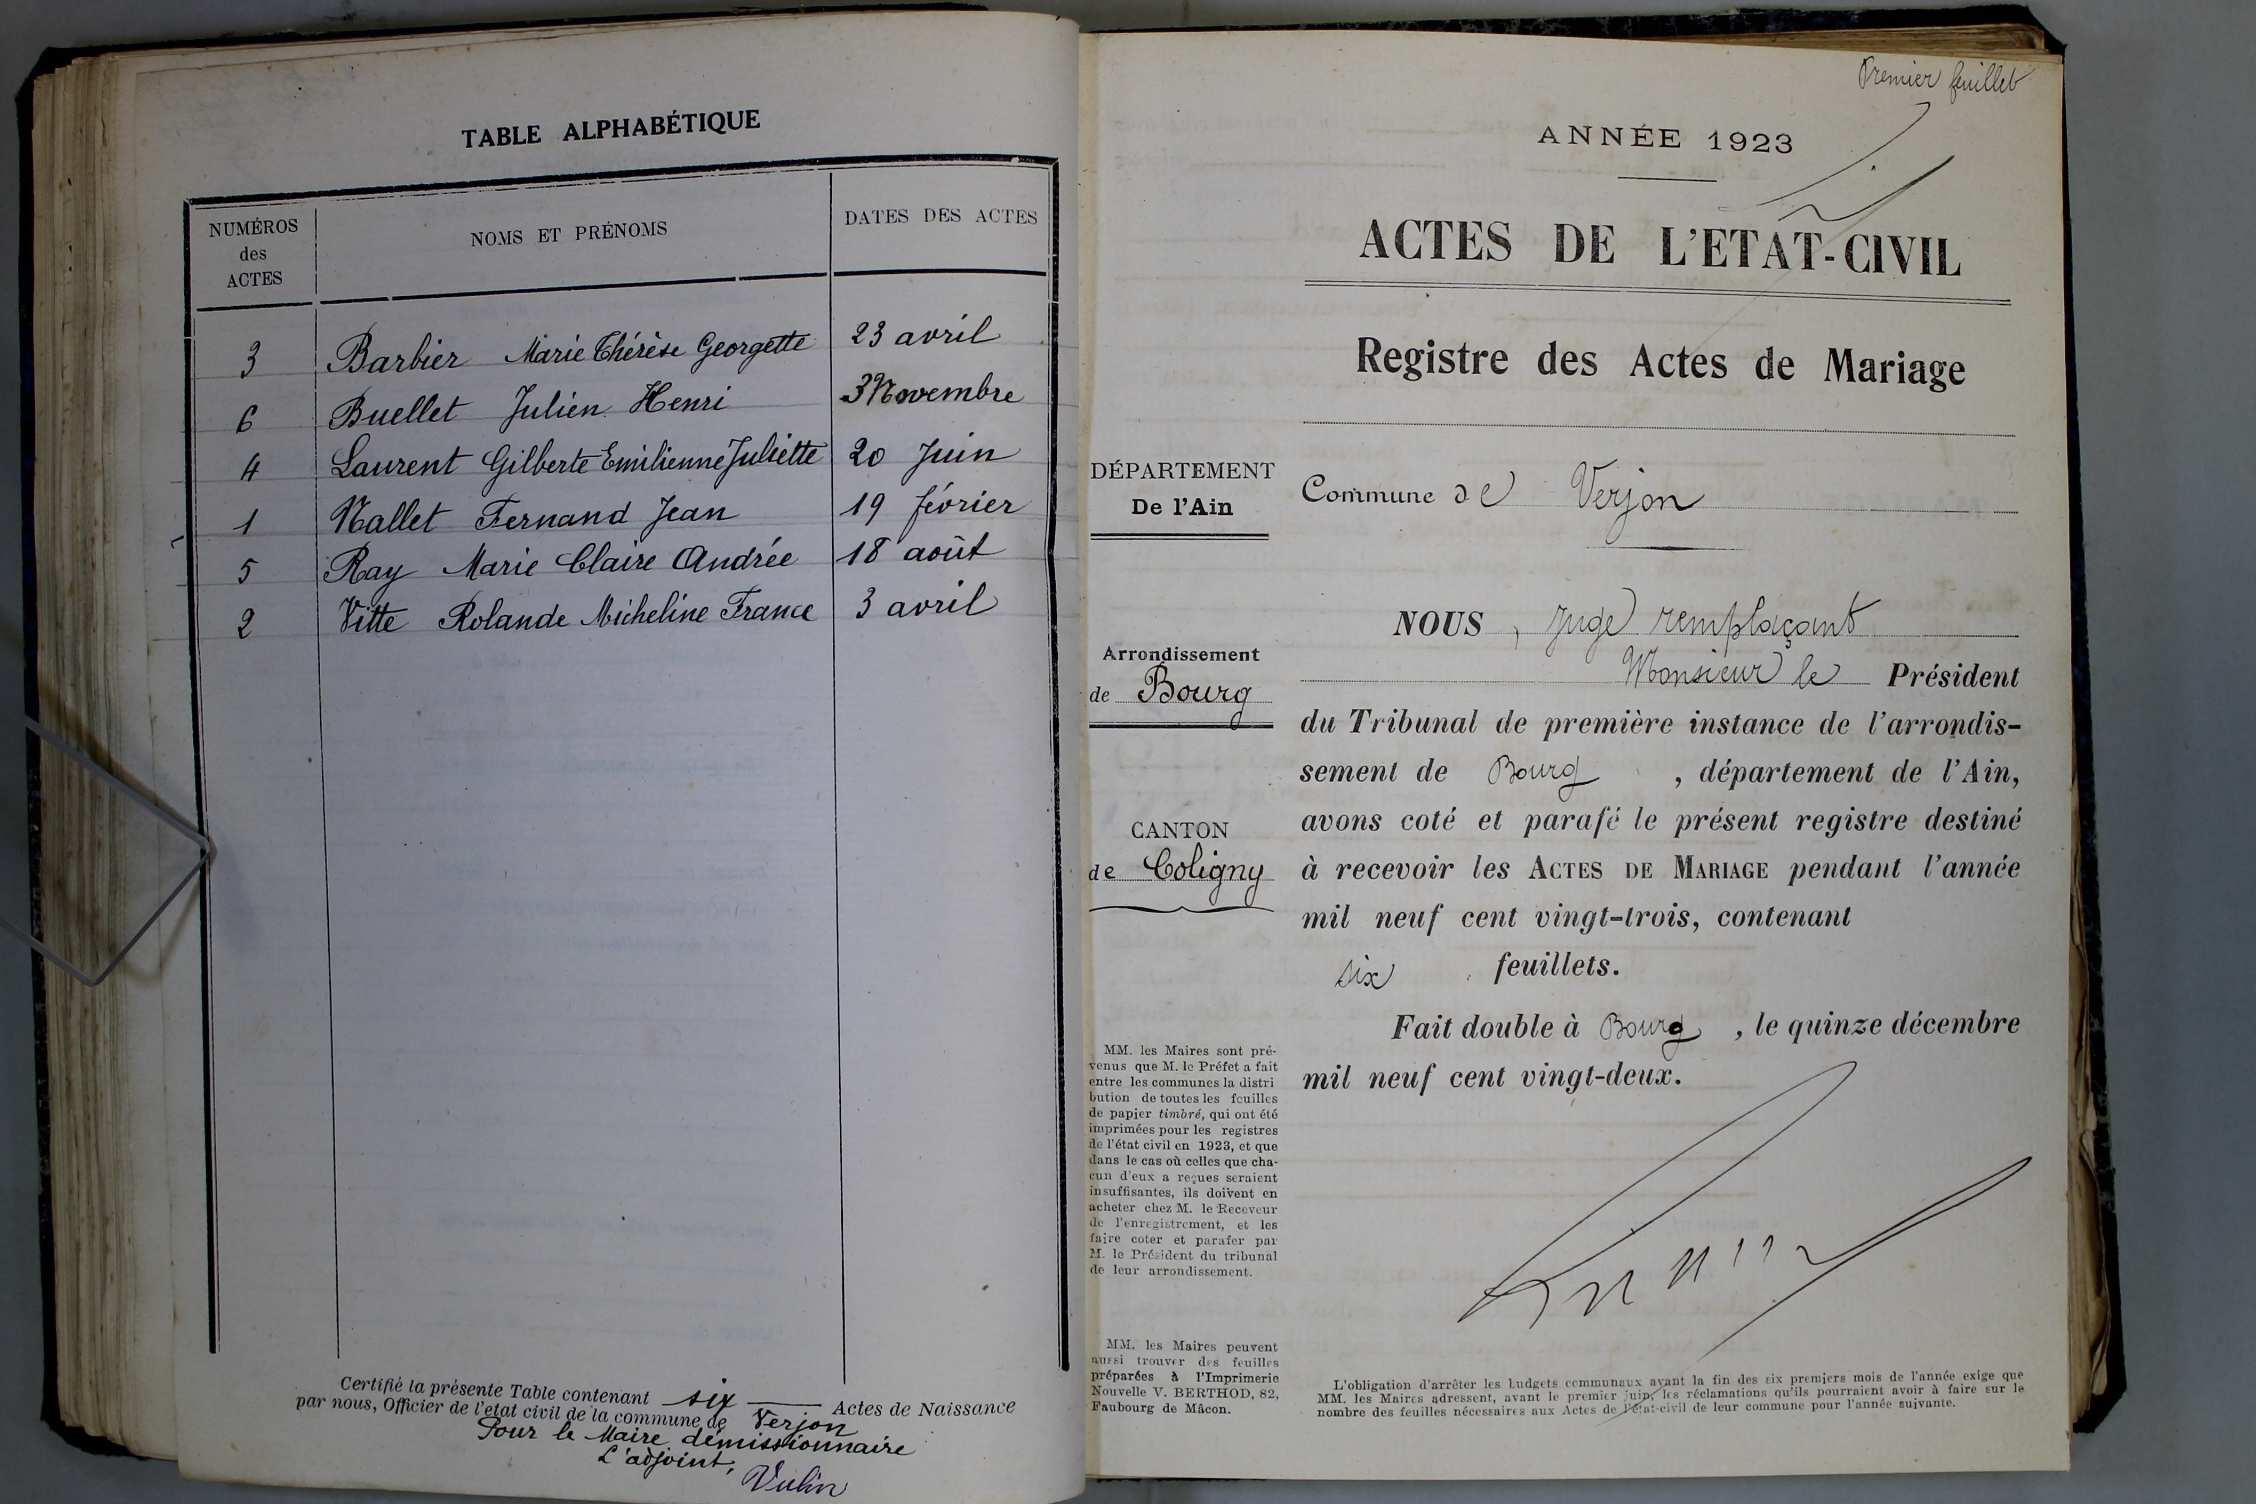 TABLE ALPHABÉTIQUE
NUMÉROS des ACTES
NOMS ET PRÉNOMS
DATES DES ACTES
3 Barbier Marie Thérèse Georgette 23 avril
6 Buellet Julien Henri 3 Novembre
4 Laurent Gilberte Emilienne Juliette 20 Juin
1 Nallet Fernand Jean 19 février
5 Ray Marie Claire Andrée 18 août
2 Vitte Rolande Micheline France 3 avril
Certifié la présente Table contenant six Actes de Naissance
par nous, Officier de l'etat civil de la commune de Verjon
Pour le Maire démissionnaire
L'adjoint,
Premier feuillet
ANNÉE 1923
ACTES DE L'ETAT-CIVIL
Registre des Actes de Mariage
DÉPARTEMENT
De l'Ain
Arrondissement
de Bourg
CANTON
de Coligny
MM. les Maires sont pré-
venus que M. le Préfet a fait
entre les communes la distri
bution de toutes les feuilles
de papier timbré, qui ont été
imprimées pour les registres
de l'état civil en 1923, et que
dans le cas où celles que cha-
cun d'eux a reçues seraient
insuffisantes, ils doivent en
acheter chez M. le Receveur
de l'enregistrement, et les
faire coter et parafer par
M. le Président du tribunal
de leur arrondissement.
MM. les Maires peuvent
aussi trouver des feuilles
préparées à l'Imprimerie
Nouvelle V. BERTHOD, 82,
Faubourg de Mâcon.
Commune de Verjon
NOUS, Juge remplaçant
Monsieur le Président
du Tribunal de première instance de l'arrondis-
sement de Bourg, département de l'Ain,
avons coté et parafé le présent registre destiné
à recevoir les ACTES DE MARIAGE pendant l'année
mil neuf cent vingt-trois, contenant
six feuillets.
Fait double à Bourg, le quinze décembre
mil neuf cent vingt-deux.
L'obligation d'arrêter les budgets communaux avant la fin des six premiers mois de l'année exige que
MM. les Maires adressent, avant le premier juin, les réclamations qu'ils pourraient avoir à faire sur le
nombre des feuilles nécessaires aux Actes de l'état-civil de leur commune pour l'année suivante.